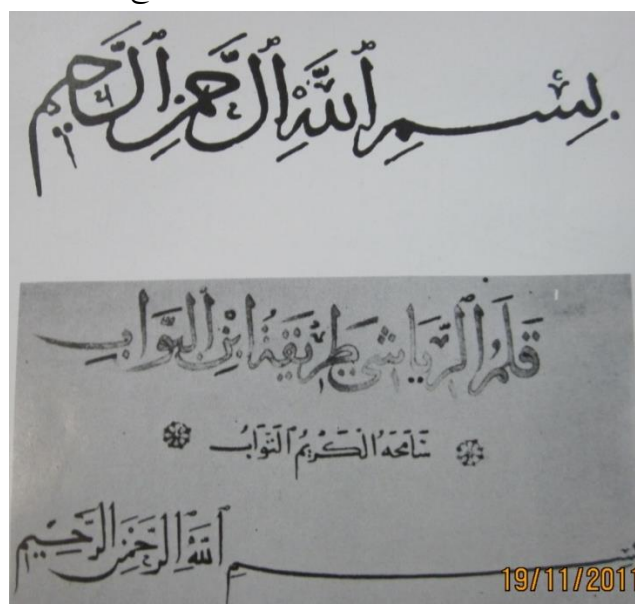 بِسْمِ ٱللَّهِ ٱلرَّحْمَنِ ٱلرَّحِيمِ
قَلَمُ ٱلرِّيَاشِي طَرِيقَةُ ابْنِ البَوَّابِ
سَامَحَهُ الْكَرِيمُ التَّوَّابُ
بسم ٱللَّهِ ٱلرَّحْمَنِ ٱلرَّحِيمِ
19/11/2011